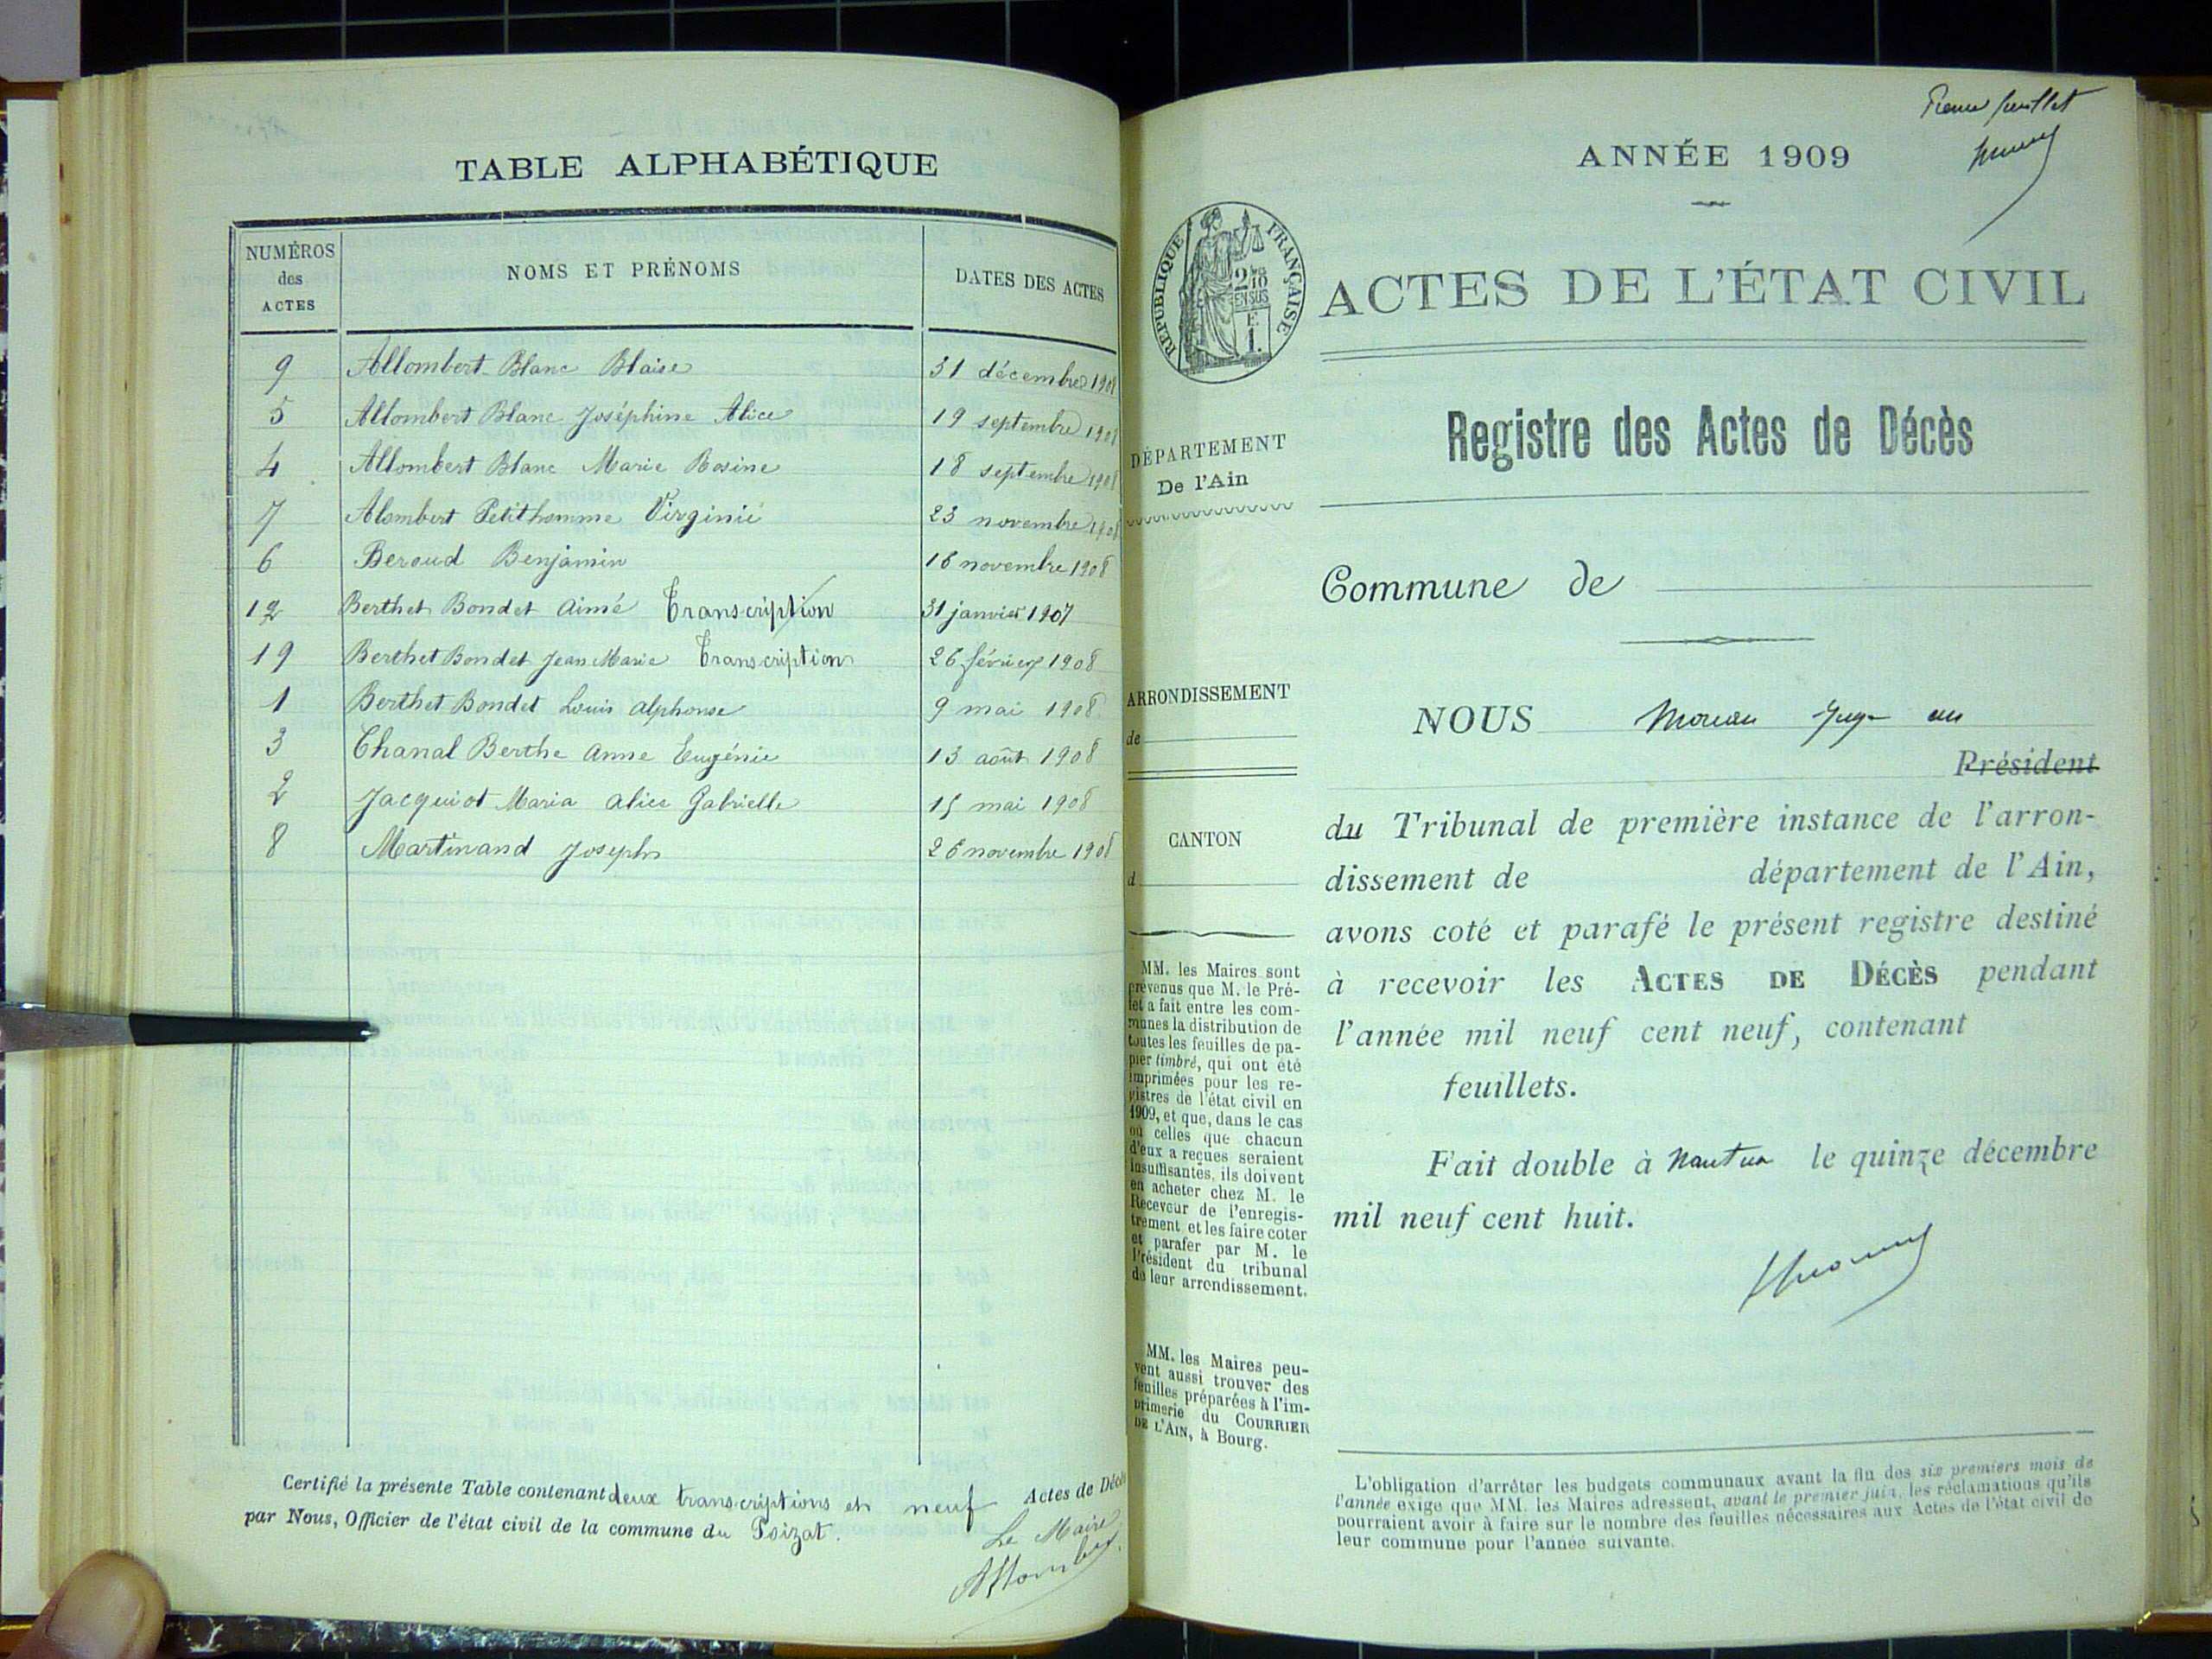 TABLE ALPHABÉTIQUE
NUMÉROS des ACTES
NOMS ET PRÉNOMS
DATES DES ACTES
9 Allombert Blanc Blaise 31 décembre 1908
5 Allombert Blanc Joséphine Alice 19 septembre 1908
4 Allombert Blanc Marie Rosine 18 septembre 1908
7 Alombert Petithomme Virginie 23 novembre 1908
6 Beroud Benjamin 16 novembre 1908
12 Berthet Bondet Aimé Transcription 31 janvier 1907
19 Berthet Bondet Jean Marie Transcription 26 février 1908
1 Berthet Bondet Louis Alphonse 9 mai 1908
3 Chanal Berthe Anne Eugénie 13 août 1908
2 Jacquiot Maria Alice Gabrielle 15 mai 1908
8 Martinand Joseph 26 novembre 1908
Certifié la présente Table contenant deux transcriptions et neuf Actes de Décès
par Nous, Officier de l'état civil de la commune du Poizat.
Le Maire
Allombert
feuillet
ANNÉE 1909
RÉPUBLIQUE FRANÇAISE
2/10
EN SUS
E
1.
ACTES DE L'ÉTAT CIVIL
Registre des Actes de Décès
DÉPARTEMENT
De l'Ain
Commune de
ARRONDISSEMENT
de
CANTON
d
NOUS Moreau Juge au
Président
du Tribunal de première instance de l'arron-
dissement de département de l'Ain,
avons coté et parafé le présent registre destiné
à recevoir les ACTES DE DÉCÈS pendant
l'année mil neuf cent neuf, contenant
feuillets.
Fait double à Nantua le quinze décembre
mil neuf cent huit.
MM. les Maires sont
prévenus que M. le Pré-
fet a fait entre les com-
munes la distribution de
toutes les feuilles de pa-
pier timbré, qui ont été
imprimées pour les re-
gistres de l'état civil en
1909, et que, dans le cas
où celles que chacun
d'eux a reçues seraient
insuffisantes, ils doivent
en acheter chez M. le
Receveur de l'enregis-
trement et les faire coter
et parafer par M. le
Président du tribunal
de leur arrondissement.
MM. les Maires peu-
vent aussi trouver des
feuilles préparées à l'im-
primerie du COURRIER
DE L'AIN, à Bourg.
L'obligation d'arrêter les budgets communaux avant la fin des six premiers mois de
l'année exige que MM. les Maires adressent, avant le premier juin, les réclamations qu'ils
pourraient avoir à faire sur le nombre des feuilles nécessaires aux Actes de l'état civil de
leur commune pour l'année suivante.